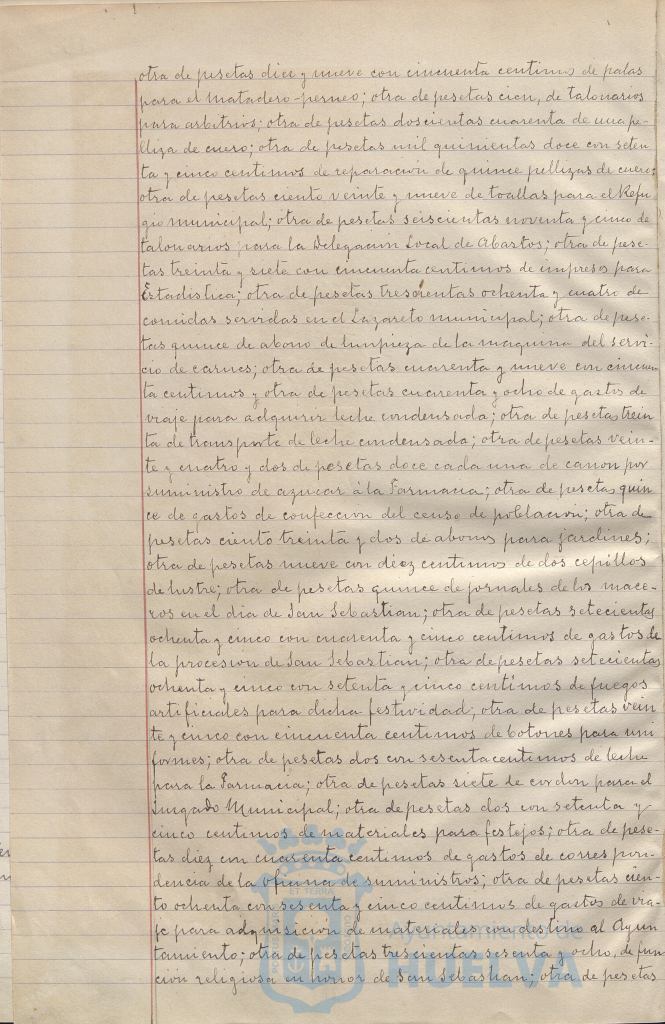 otra de pesetas diez y nueve con cincuenta centimos de palas
para el matadero-perneo; otra de pesetas cien, de talonarios
para arbitrios; otra de pesetas doscientas cuarenta de una pe-
lliza de cuero; otra de pesetas mil quinientas doce con seten
ta y cinco centimos de reparacion de quince pellizas de cuero;
otra de pesetas ciento veinte y nueve de toallas para el Refu
gio municipal; otra de pesetas seiscientas noventa y cinco de
talonarios para la Delegación Local de Abastos; otra de pese-
tas treinta y siete con cincuenta centimos de impresos para
Estadistica; otra de pesetas trescientas ochenta y cuatro de
comidas servidas en el Lazareto municipal; otra de pese-
tas quince de abono de limpieza de la maquina del servi-
cio de carnes; otra de pesetas cuarenta y nueve con cincuen
ta centimos y otra de pesetas cuarenta y ocho de gastos de
viaje para adquirir leche condensada; otra de pesetas trein
ta de transporte de leche condensada; otra de pesetas vein-
te y cuatro y dos de pesetas doce cada una de canon por
suministro de azucar á la Farmacia; otra de pesetas quin
ce de gastos de confeccion del censo de población; otra de
pesetas ciento treinta y dos de abonos para jardines;
otra de pesetas nueve con diez centimos de dos cepillos
de lustre; otra de pesetas quince de jornales de los mace-
ros en el dia de San Sebastian; otra de pesetas setecientas
ochenta y cinco con cuarenta y cinco centimos de gastos de
la procesion de San Sebastian; otra de pesetas setecientas
ochenta y cinco con setenta y cinco centimos de fuegos
artificiales para dicha festividad; otra de pesetas vein
te y cinco con cincuenta centimos de botones para uni
formes; otra de pesetas dos con sesenta centimos de leche
para la Farmacia; otra de pesetas siete de cordon para el
Juzgado Municipal; otra de pesetas dos con setenta y
cinco centimos de materiales para festejos; otra de pese-
tas diez con cuarenta centimos de gastos de correspon-
dencia de la oficina de suministros; otra de pesetas cien-
to ochenta con sesenta y cinco centimos de gastos de via-
je para adquisición de materiales con destino al Ayun
tamiento; otra de pesetas trescientas sesenta y ocho, de fun
ción religiosa en honor de San Sebastian; otra de pesetas
Ayuntamiento de
HUELVA